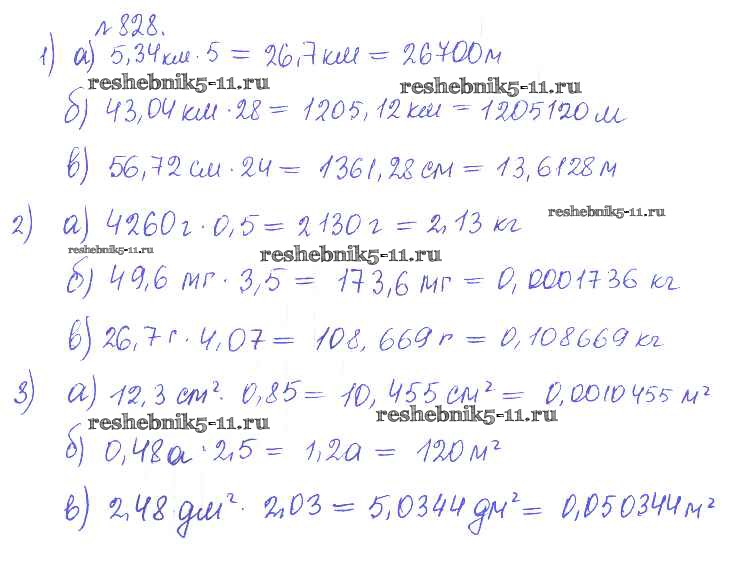 №828.
1) а) 5,34 км · 5 = 26,7 км = 26700 м
reshebnik5-11.ru reshebnik5-11.ru
б) 43,04 км · 28 = 1205,12 км = 1205120 м
в) 56,72 см · 24 = 1361,28 см = 13,6128 м
reshebnik5-11.ru
2) а) 4260 г · 0,5 = 2130 г = 2,13 кг
reshebnik5-11.ru reshebnik5-11.ru
б) 49,6 мг · 3,5 = 173,6 мг = 0,0001736 кг
в) 26,7 г · 4,07 = 108,669 г = 0,108669 кг
3) а) 12,3 см² · 0,85 = 10,455 см² = 0,0010455 м²
reshebnik5-11.ru reshebnik5-11.ru
б) 0,48 а · 2,5 = 1,2 а = 120 м²
в) 2,48 дм² · 2,03 = 5,0344 дм² = 0,050344 м²